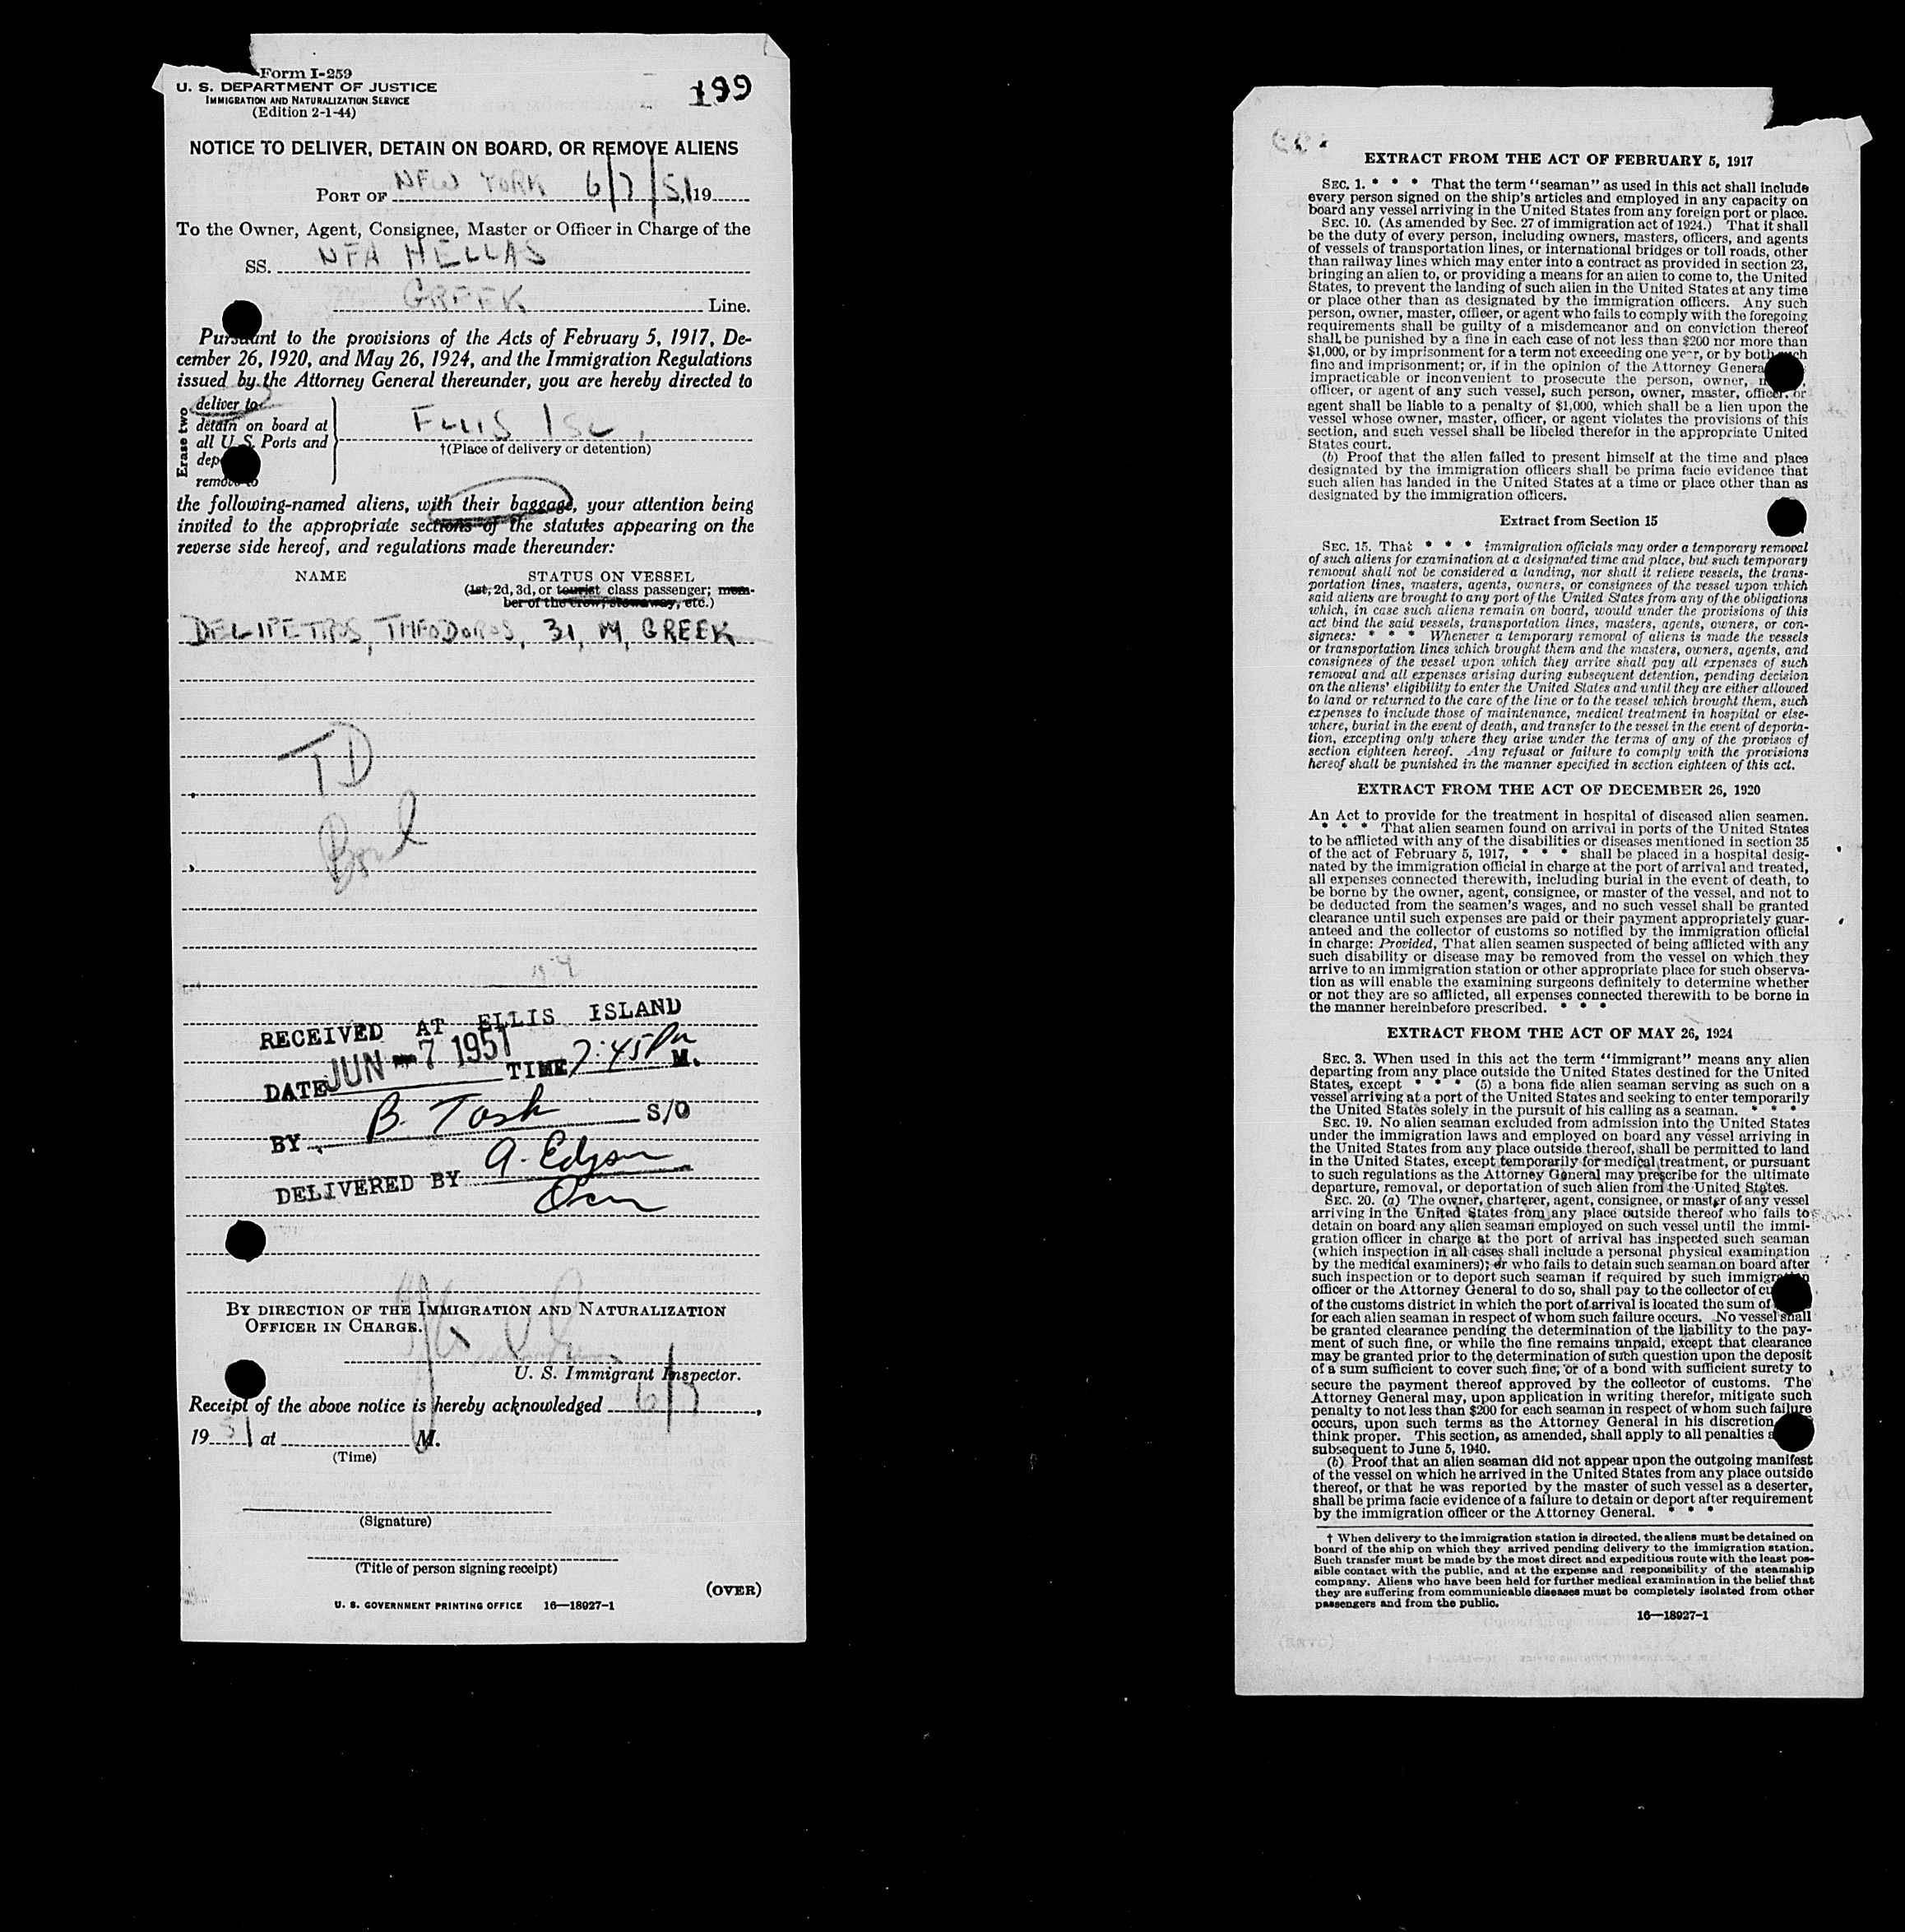 Form I-259
U. S. DEPARTMENT OF JUSTICE
IMMIGRATION AND NATURALIZATION SERVICE
(Edition 2-1-44)
199
NOTICE TO DELIVER, DETAIN ON BOARD, OR REMOVE ALIENS
PORT OF NEW YORK 6/7/51, 19
To the Owner, Agent, Consignee, Master or Officer in Charge of the
SS. NEA HELLAS
GREEK Line.
Pursuant to the provisions of the Acts of February 5, 1917, De-
cember 26, 1920, and May 26, 1924, and the Immigration Regulations
issued by the Attorney General thereunder, you are hereby directed to
Erase two
deliver to
detain on board at
all U. S. Ports and
dep
remove to
ELLIS ISL.
†(Place of delivery or detention)
the following-named aliens, with their baggage, your attention being
invited to the appropriate sections of the statutes appearing on the
reverse side hereof, and regulations made thereunder:
NAME STATUS ON VESSEL
(1st, 2d, 3d, or tourist class passenger; mem-
ber of the crew, stowaway, etc.)
DELIPETROS, THEODOROS, 31, M, GREEK
TD
Bond
RECEIVED AT ELLIS ISLAND
DATE JUN -7 1951 TIME 7:45 PM M.
BY B. Tosh S/O
DELIVERED BY A. Edgson
BY DIRECTION OF THE IMMIGRATION AND NATURALIZATION
OFFICER IN CHARGE.
U. S. Immigrant Inspector.
Receipt of the above notice is hereby acknowledged 6/7,
19 51 at M.
(Time)
(Signature)
(Title of person signing receipt)
(OVER)
U. S. GOVERNMENT PRINTING OFFICE 16—18927-1
EXTRACT FROM THE ACT OF FEBRUARY 5, 1917
SEC. 1. * * * That the term "seaman" as used in this act shall include
every person signed on the ship's articles and employed in any capacity on
board any vessel arriving in the United States from any foreign port or place.
SEC. 10. (As amended by Sec. 27 of immigration act of 1924.) That it shall
be the duty of every person, including owners, masters, officers, and agents
of vessels of transportation lines, or international bridges or toll roads, other
than railway lines which may enter into a contract as provided in section 23,
bringing an alien to, or providing a means for an alien to come to, the United
States, to prevent the landing of such alien in the United States at any time
or place other than as designated by the immigration officers. Any such
person, owner, master, officer, or agent who fails to comply with the foregoing
requirements shall be guilty of a misdemeanor and on conviction thereof
shall be punished by a fine in each case of not less than $200 nor more than
$1,000, or by imprisonment for a term not exceeding one year, or by both such
fine and imprisonment; or, if in the opinion of the Attorney Genera
impracticable or inconvenient to prosecute the person, owner,
officer, or agent of any such vessel, such person, owner, master, officer, or
agent shall be liable to a penalty of $1,000, which shall be a lien upon the
vessel whose owner, master, officer, or agent violates the provisions of this
section, and such vessel shall be libeled therefor in the appropriate United
States court.
(b) Proof that the alien failed to present himself at the time and place
designated by the immigration officers shall be prima facie evidence that
such alien has landed in the United States at a time or place other than as
designated by the immigration officers.
Extract from Section 15
SEC. 15. That * * * immigration officials may order a temporary removal
of such aliens for examination at a designated time and place, but such temporary
removal shall not be considered a landing, nor shall it relieve vessels, the trans-
portation lines, masters, agents, owners, or consignees of the vessel upon which
said aliens are brought to any port of the United States from any of the obligations
which, in case such aliens remain on board, would under the provisions of this
act bind the said vessels, transportation lines, masters, agents, owners, or con-
signees: * * * Whenever a temporary removal of aliens is made the vessels
or transportation lines which brought them and the masters, owners, agents, and
consignees of the vessel upon which they arrive shall pay all expenses of such
removal and all expenses arising during subsequent detention, pending decision
on the aliens' eligibility to enter the United States and until they are either allowed
to land or returned to the care of the line or to the vessel which brought them, such
expenses to include those of maintenance, medical treatment in hospital or else-
where, burial in the event of death, and transfer to the vessel in the event of deporta-
tion, excepting only where they arise under the terms of any of the provisos of
section eighteen hereof. Any refusal or failure to comply with the provisions
hereof shall be punished in the manner specified in section eighteen of this act.
EXTRACT FROM THE ACT OF DECEMBER 26, 1920
An Act to provide for the treatment in hospital of diseased alien seamen.
* * * That alien seamen found on arrival in ports of the United States
to be afflicted with any of the disabilities or diseases mentioned in section 35
of the act of February 5, 1917, * * * shall be placed in a hospital desig-
nated by the immigration official in charge at the port of arrival and treated,
all expenses connected therewith, including burial in the event of death, to
be borne by the owner, agent, consignee, or master of the vessel, and not to
be deducted from the seamen's wages, and no such vessel shall be granted
clearance until such expenses are paid or their payment appropriately guar-
anteed and the collector of customs so notified by the immigration official
in charge: Provided, That alien seamen suspected of being afflicted with any
such disability or disease may be removed from the vessel on which they
arrive to an immigration station or other appropriate place for such observa-
tion as will enable the examining surgeons definitely to determine whether
or not they are so afflicted, all expenses connected therewith to be borne in
the manner hereinbefore prescribed. * * *
EXTRACT FROM THE ACT OF MAY 26, 1924
SEC. 3. When used in this act the term "immigrant" means any alien
departing from any place outside the United States destined for the United
States, except * * * (5) a bona fide alien seaman serving as such on a
vessel arriving at a port of the United States and seeking to enter temporarily
the United States solely in the pursuit of his calling as a seaman. * * *
SEC. 19. No alien seaman excluded from admission into the United States
under the immigration laws and employed on board any vessel arriving in
the United States from any place outside thereof, shall be permitted to land
in the United States, except temporarily for medical treatment, or pursuant
to such regulations as the Attorney General may prescribe for the ultimate
departure, removal, or deportation of such alien from the United States.
SEC. 20. (a) The owner, charterer, agent, consignee, or master of any vessel
arriving in the United States from any place outside thereof who fails to
detain on board any alien seaman employed on such vessel until the immi-
gration officer in charge at the port of arrival has inspected such seaman
(which inspection in all cases shall include a personal physical examination
by the medical examiners); or who fails to detain such seaman on board after
such inspection or to deport such seaman if required by such immigration
officer or the Attorney General to do so, shall pay to the collector of cu
of the customs district in which the port of arrival is located the sum of
for each alien seaman in respect of whom such failure occurs. No vessel shall
be granted clearance pending the determination of the liability to the pay-
ment of such fine, or while the fine remains unpaid, except that clearance
may be granted prior to the determination of such question upon the deposit
of a sum sufficient to cover such fine, or of a bond with sufficient surety to
secure the payment thereof approved by the collector of customs. The
Attorney General may, upon application in writing therefor, mitigate such
penalty to not less than $200 for each seaman in respect of whom such failure
occurs, upon such terms as the Attorney General in his discretion
think proper. This section, as amended, shall apply to all penalties a
subsequent to June 5, 1940.
(b) Proof that an alien seaman did not appear upon the outgoing manifest
of the vessel on which he arrived in the United States from any place outside
thereof, or that he was reported by the master of such vessel as a deserter,
shall be prima facie evidence of a failure to detain or deport after requirement
by the immigration officer or the Attorney General. * * *
† When delivery to the immigration station is directed, the aliens must be detained on
board of the ship on which they arrived pending delivery to the immigration station.
Such transfer must be made by the most direct and expeditious route with the least pos-
sible contact with the public, and at the expense and responsibility of the steamship
company. Aliens who have been held for further medical examination in the belief that
they are suffering from communicable diseases must be completely isolated from other
passengers and from the public.
16—18927-1